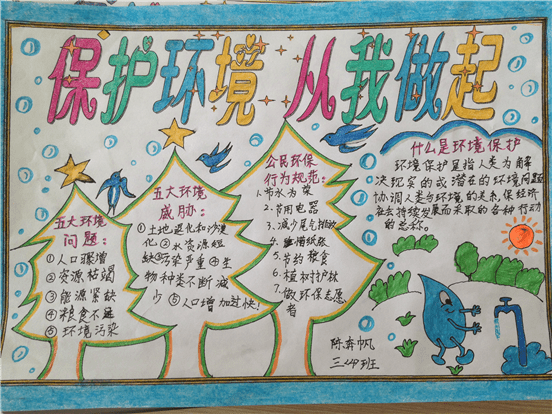 保护环境 从我做起
五大环境
问题：
①人口骤增
②资源枯竭
③能源紧缺
④粮食不足
⑤环境污染
五大环境
威胁：
①土地退化和沙漠
化②水资源短
缺③污染严重④生
物种类不断减
少⑤人口增加过快！
公民环保
行为规范：
1.节水为荣
2.节用电器
3.减少尾气排放
4.重惜纸张
5.节约粮食
6.植树护林
7.做环保志愿
者
什么是环境保护
环境保护是指人类为解
决现实的或潜在的环境问题
协调人类与环境的关系，保经济
社会持续发展而采取的各种行动
的总称。
陈奔帆
三(4)班